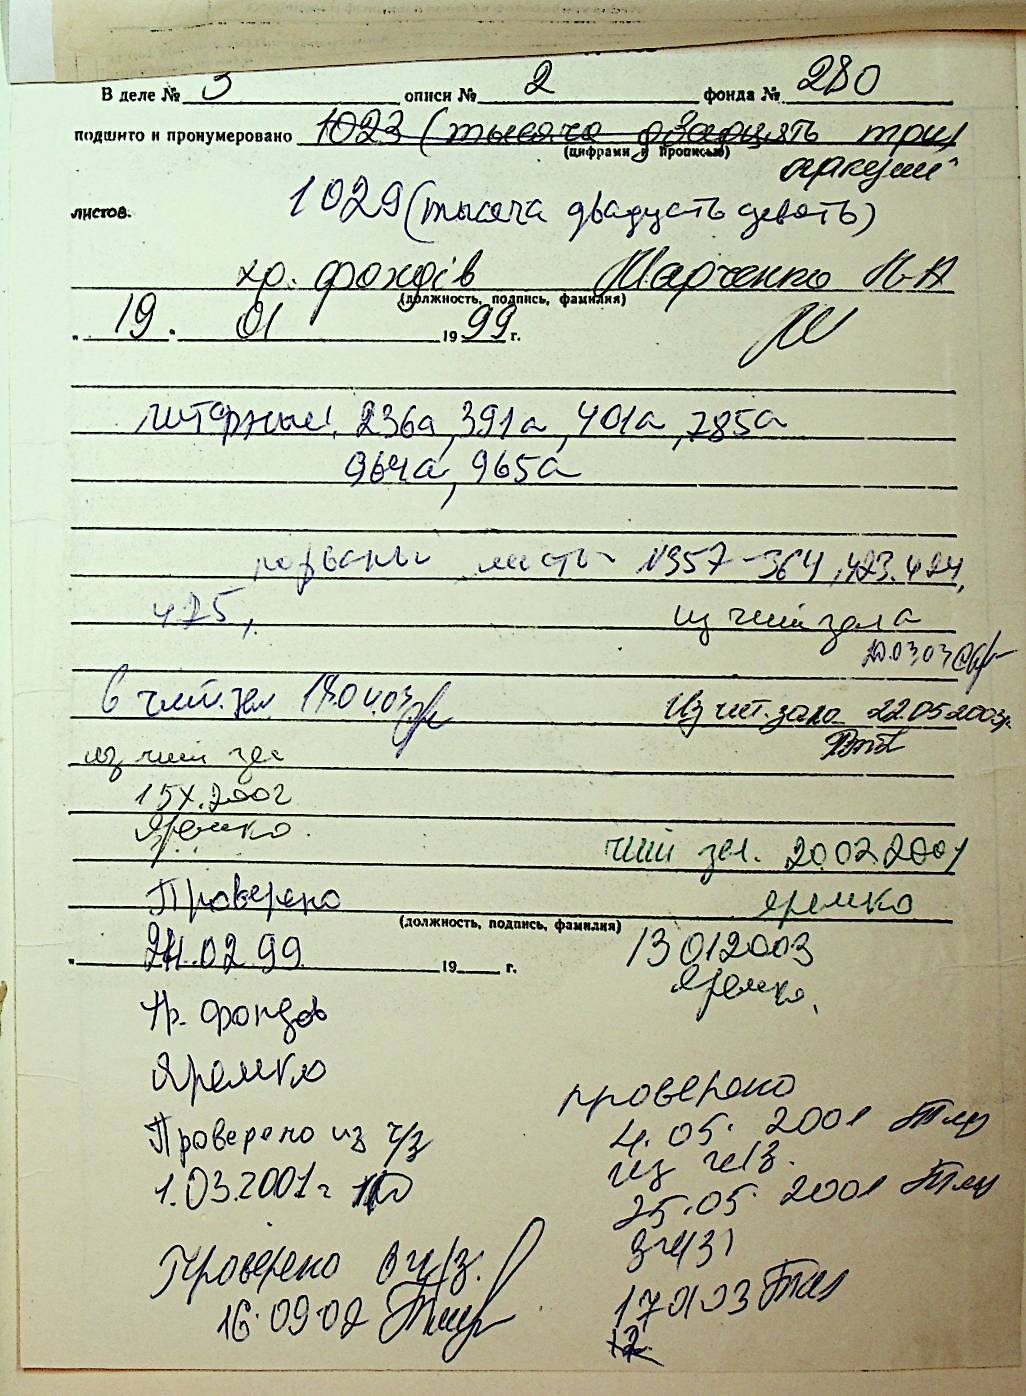 В деле № 3 описи № 2 фонда № 280
подшито и пронумеровано 1023 (тысяча двадцять три
(цифрами и прописью)
аркуші
листов. 1029 (тысяча двадцать девять)
хр. фондів Марченко Н.А
(должность, подпись, фамилия)
„ 19. 01 1999 г.
литерные: 236а, 391а, 401а, 785а
964а, 965а
порваны листы №357-364, 423, 424,
425,
из чит зала
20.03.03
в чит. зал
Из чит. зала 22.05.2003г.
из чит зал
15X.2002
Яремко.
чит зал. 20.02.2001
Яремко
Проверено
(должность, подпись, фамилия)
„ 24.02.99 19 г.
13 01 2003
Яремко.
Хр. фондов
Яремко
проверено
4.05. 2001
Проверено из ч/з
1.03.2001г
из ч/з.
25.05 2001
з ч/з
Проверено в ч/з.
16.09.02
17 01 03
12